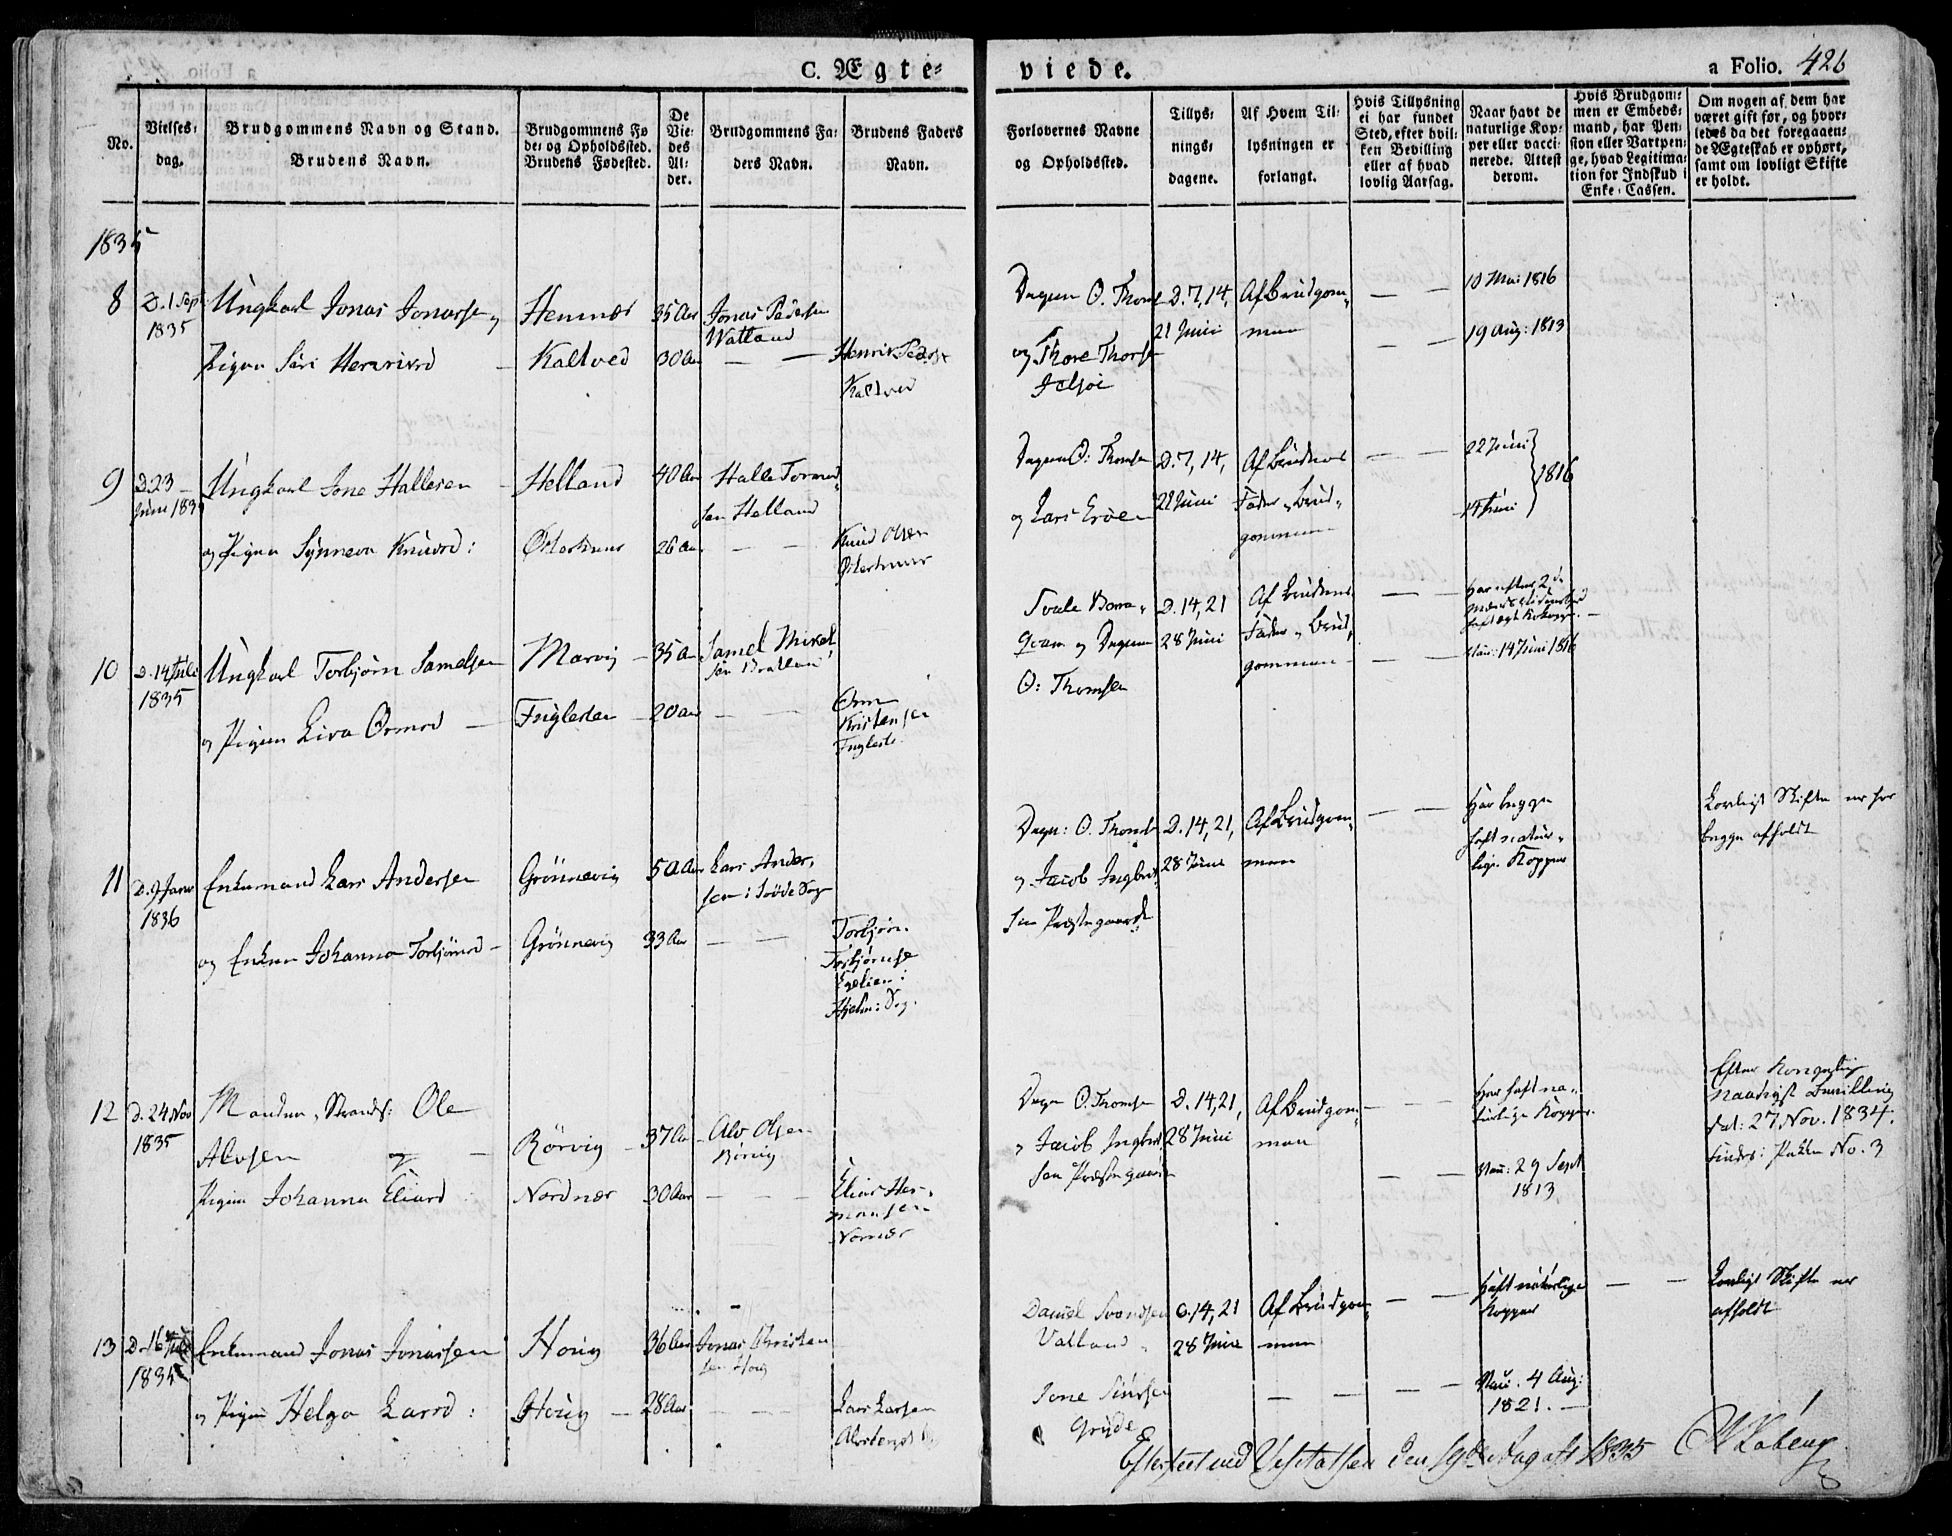 C. Ægte=
viede.
a Folio. 426
No.
Vielses:
dag.
Brudgommens Navn og Stand.
Brudens Navn.
Brudgommens Fø
de: og Opholdssted.
Brudens Fødested.
De
Vie=
des
Al=
der.
Brudgommens Fa=
ders Navn.
Brudens Faders
Navn.
Forlovernes Navne
og Opholdssted.
Tillys=
nings=
dagene.
Af Hvem Til=
lysningen er
forlangt.
Hvis Tillysning
ei har fundet
Sted, efter hvil=
ken Bevilling
eller af hvad
lovlig Aarsag.
Naar havt de
naturlige Kop=
per eller vacci=
nerede. Attest
derom.
Hvis Brudgom=
men er Embeds=
mand, har Pen=
sion eller Vartpen=
ge, hvad Legitima=
tion for Indskud i
Enke=Cassen.
Om nogen af dem har
været gift før, og hvor=
ledes da det foregaaen=
de Ægteskab er ophørt,
samt om lovligt Skifte
er holdt.
1835
8
D. 1 Sept
1835
Ungkarl Jonas Jonasse og
Pigen Siri Henrisd
Hemnær
Kaltved
35 Aar
30 Aar
Jonas Pedersen
Watland
Henrik Peders
Kaltved
Dagun O. Thoms
og Thore Thorse
Jelsöe
D. 7, 14,
21 Juni
Af Brudgom,
men
10 Mai 1816
19 Aug: 1813
9
D. 23
Juni 183
Ungkarl Jone Hallesen
og Pigen Synneva Knudsd:
Helland
Østerhuus
40 Aar
26 Aar
Halle Tormod,
sen Helland
Knud Olsen
Østerhuus
Dagun O: Thomse
og Lars Eröe
D. 7, 14,
21 Juni
Af Brudens
Fader, Brud,
gommen
22 Juni
14 Juni
1816
10
D. 14 Juli
1835
Ungkarl Torbjörn Samelsen
og Pigen Liva Ormsd
Marvig
Fuglesten
35 Aar
20 Aar
Samel Mikel
sen Bratland
Orm
Kristensen
Fugleste
Qvam og Dagun
O: Thomsen
D. 14, 21
28 Juni
Af Brudens
Fader, Brud,
gommen
Vac: 14 Juni 1816
11
D. 9 Janr
1836
Enkemand Lars Andersen
og Enken Johanna Torbjörnsd
Grönnevig
Grönnevig
50 Aar
33 Aar
Lars Ander,
sen i
Torbjörn
Torbjörnse
Hjelm: Sog.
Dagn: O. Thomse
og Jacob Ingbrit
sen Præstegaard
D. 14, 21,
28 Juni
Af Brudgom,
men
Har begge
haft natur,
lige Kopper
Lovligt Skifte er for
begge afholdt
12
D. 24 Nov
1835
Manden, Strands: Ole
Alvsen og
Pigen Johanna Eliasd
Rörvig
Nordnær
37 Aar
30 Aar
Alv Olsen
Rörvig
Elias Her,
mansen
Nornær
Dagn O. Thomse
og Jacob Ingbrit
sen Præstegaard
D. 14, 21,
28 Juni
Af Brudgom,
men
Har haft na,
turlige Kopper.
Vac: 29 Sept
1813
Efter Kongelig
naadigst Bevilling
dat: 27 Nov. 1834.
Findes: Pakken No. 3
13
D. 16 Juli
1835
Enkemand Jonas Jonassen
og Pigen Helga Larsd:
Houg
Houg
36 Aar
28 Aar
Jonas Christen
sen Houg
Lars Larsen
Daniel Svendsen
Vatland
Jone Simsen
Grude
D. 14, 21
28 Juni
Af Brudgom,
men
Haft naturlige
Kopper
Vac. 4 Aug:
1821.
Lovligt Skifte er
afholdt
Efterseet ved Visitatsen den 19de August 1835